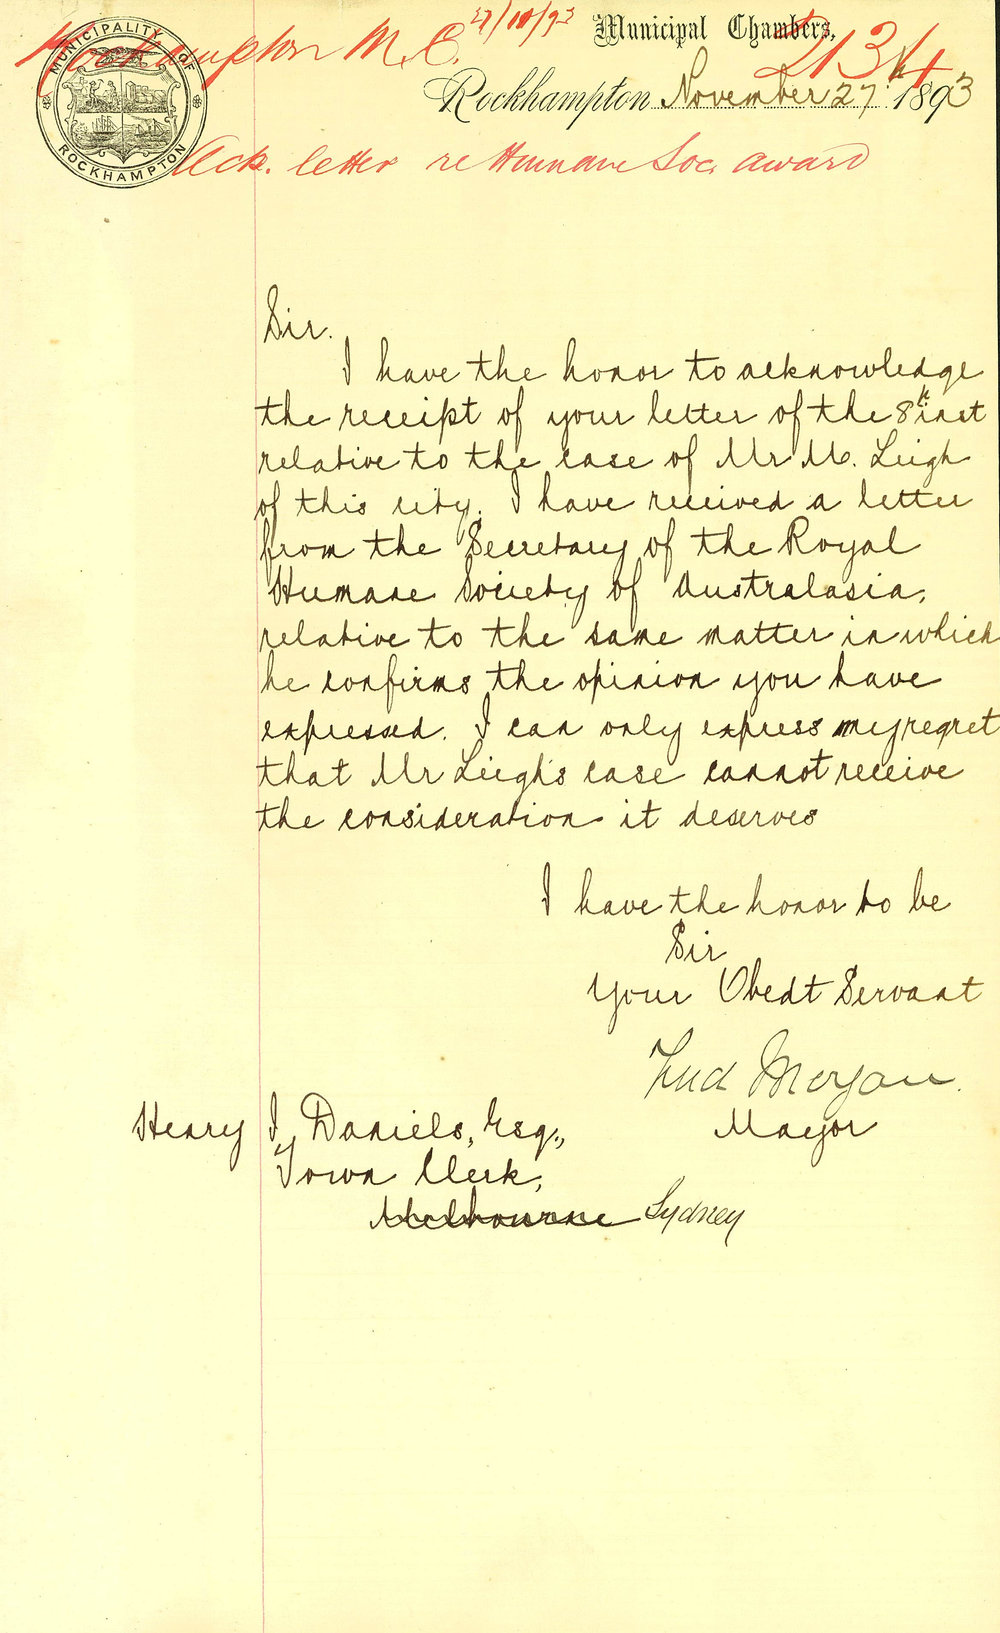 MUNICIPALITY OF ROCKHAMPTON
Rockhampton M.C. 27/11/93
2134
Municipal Chambers,
Rockhampton November 27th 1893
Ack. letter re Humane Soc. award
Sir.
I have the honor to acknowledge
the receipt of your letter of the 8th inst
relative to the case of Mr M. Leigh
of this city. I have received a letter
from the Secretary of the Royal
Humane Society of Australasia,
relative to the same matter in which
he confirms the opinion you have
expressed. I can only express my regret
that Mr Leigh's case cannot receive
the consideration it deserves
I have the honor to be
Sir
Your Obedt Servant
Fred Morgan.
Mayor
Henry J. Daniels, Esq.,
Town Clerk,
Melbourne Sydney